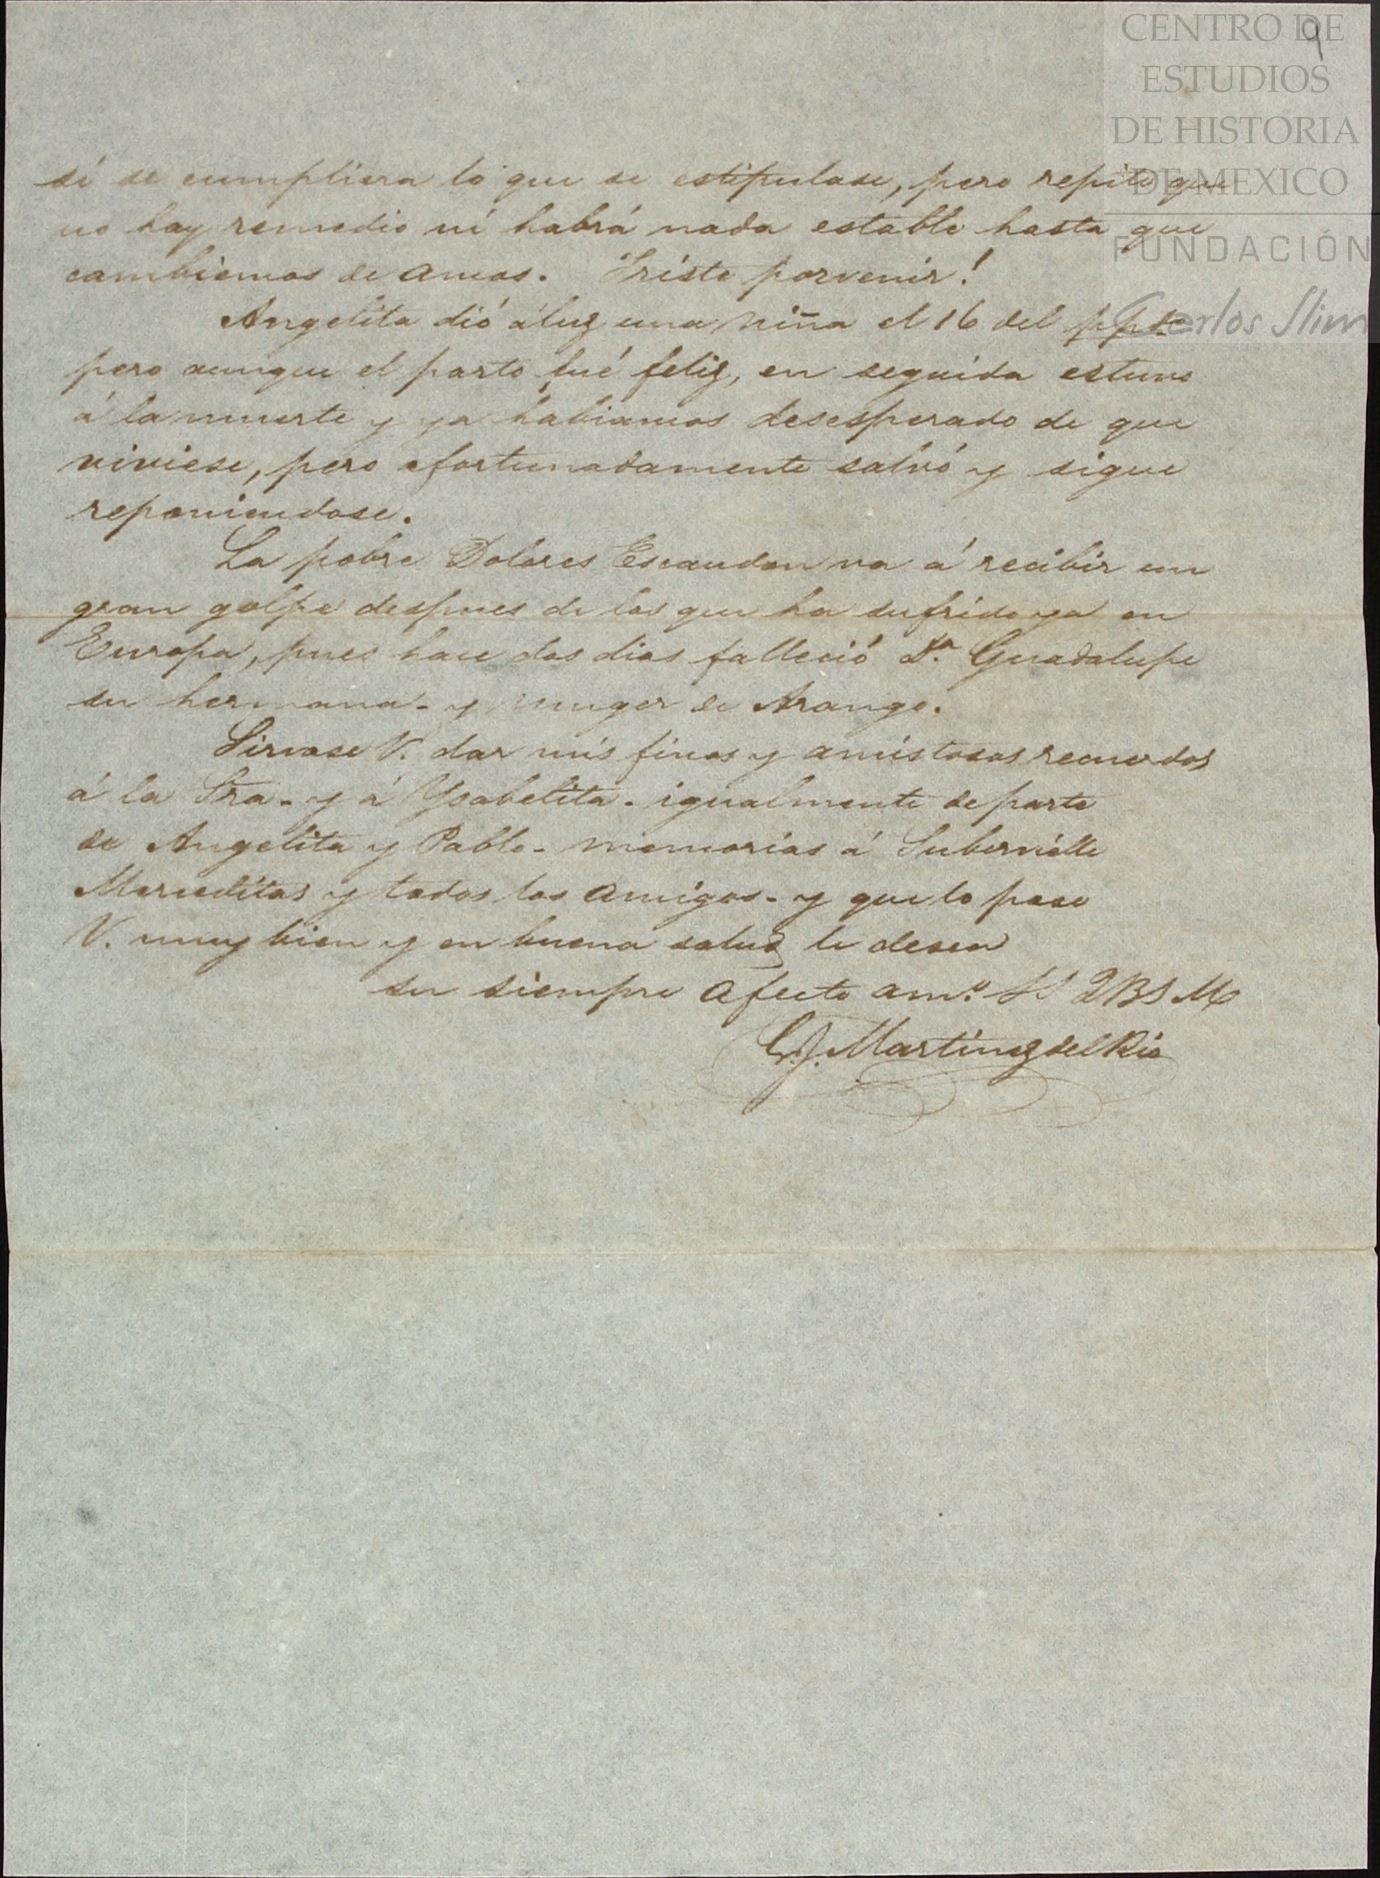 9
CENTRO DE
ESTUDIOS
DE HISTORIA
DE MEXICO
FUNDACIÓN
Carlos Slim
sí se cumpliera lo que se estipulase, pero repito que
no hay remedio ni habrá nada estable hasta que
cambiemos de amos. Triste porvenir!
Angelita dió á luz una niña el 16 del
pero aunque el parto fué feliz, en seguida estuvo
á la muerte y ya habiamos desesperado de que
viviese, pero afortunadamente salvó y sigue
reponiendose.
La pobre Dolores Escandon va á recibir un
gran golpe despues de los que ha sufrido ya en
Europa, pues hace dos dias falleció Da. Guadalupe
su hermana - y muger de Arango.
Sirvase V. dar mis finos y amistosos recuerdos
á la Sra - y á Ysabelita - igualmente de parte
de Angelita y Pablo - memorias á Subervielle
Merceditas y todos los amigos - y que lo pase
V. muy bien y en buena salud le desea
su siempre afecto amo. SS QBSM
G. J. Martinez del Rio